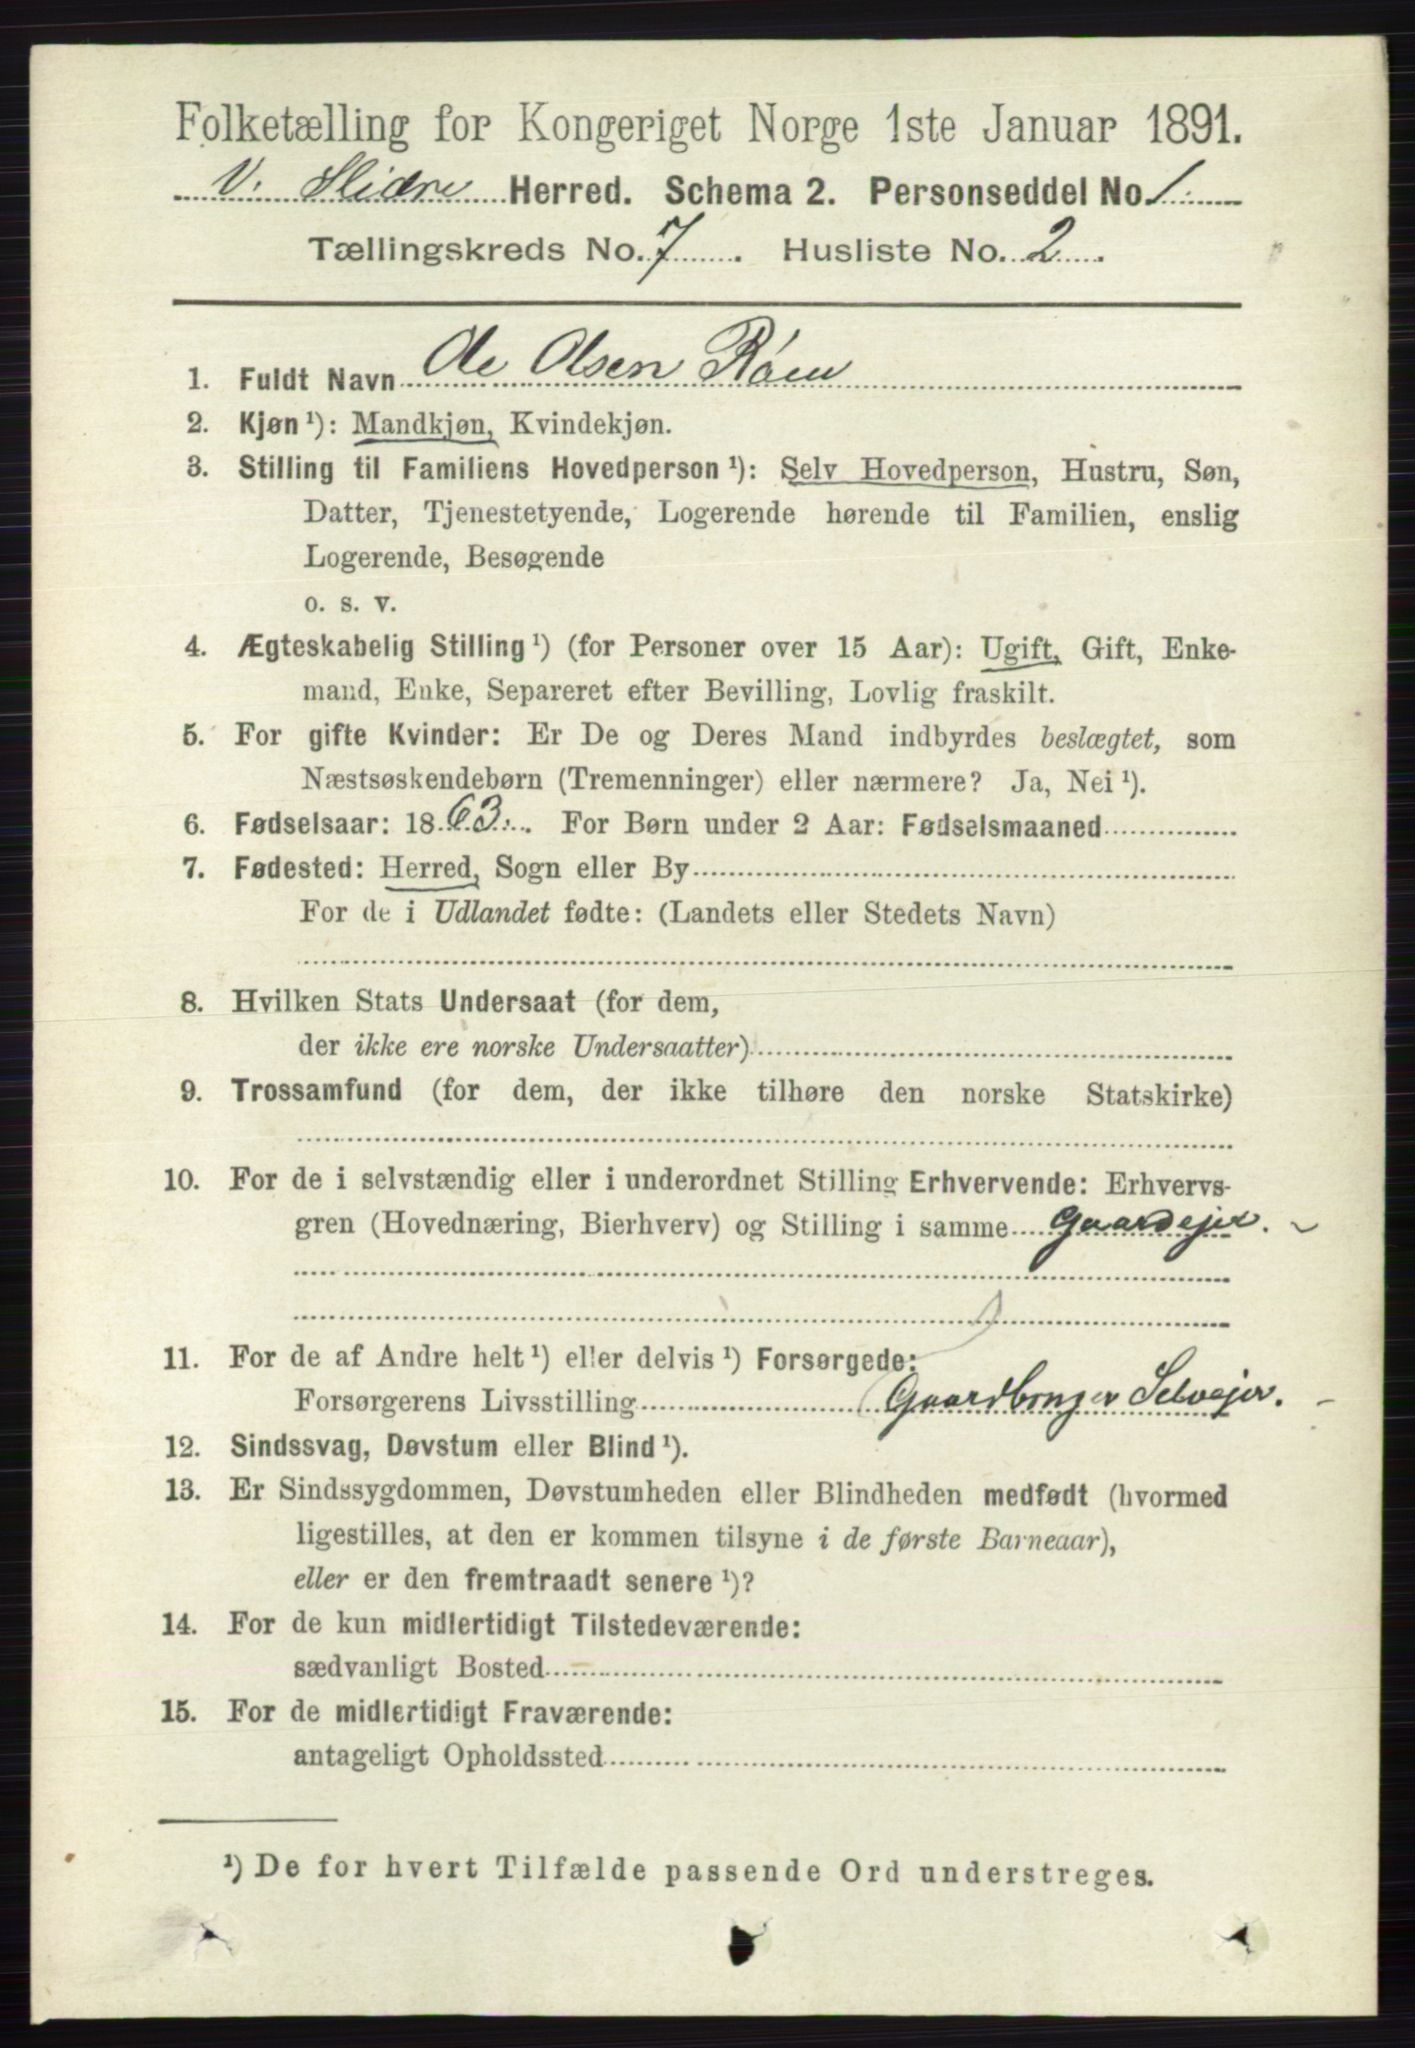 Folketælling for Kongeriget Norge 1ste Januar 1891.
V. Slidre Herred. Schema 2. Personseddel No. 1.
Tællingskreds No. 7. Husliste No. 2.
1. Fuldt Navn Ole Olsen Røen
2. Kjøn ¹): Mandkjøn, Kvindekjøn.
3. Stilling til Familiens Hovedperson ¹): Selv Hovedperson, Hustru, Søn,
Datter, Tjenestetyende, Logerende hørende til Familien, enslig
Logerende, Besøgende
o. s. v.
4. Ægteskabelig Stilling ¹) (for Personer over 15 Aar): Ugift, Gift, Enke-
mand, Enke, Separeret efter Bevilling, Lovlig fraskilt.
5. For gifte Kvinder: Er De og Deres Mand indbyrdes beslægtet, som
Næstsøskendebørn (Tremenninger) eller nærmere? Ja, Nei ¹).
6. Fødselsaar: 1863. For Børn under 2 Aar: Fødselsmaaned
7. Fødested: Herred, Sogn eller By
For de i Udlandet fødte: (Landets eller Stedets Navn)
8. Hvilken Stats Undersaat (for dem,
der ikke ere norske Undersaatter)
9. Trossamfund (for dem, der ikke tilhøre den norske Statskirke)
10. For de i selvstændig eller i underordnet Stilling Erhvervende: Erhvervs-
gren (Hovednæring, Bierhverv) og Stilling i samme Gaardejer.
11. For de af Andre helt ¹) eller delvis ¹) Forsørgede:
Forsørgerens Livsstilling Gaardbruger Selvejer.
12. Sindssvag, Døvstum eller Blind ¹).
13. Er Sindssygdommen, Døvstumheden eller Blindheden medfødt (hvormed
ligestilles, at den er kommen tilsyne i de første Barneaar),
eller er den fremtraadt senere ¹)?
14. For de kun midlertidigt Tilstedeværende:
sædvanligt Bosted
15. For de midlertidigt Fraværende:
antageligt Opholdssted
¹) De for hvert Tilfælde passende Ord understreges.